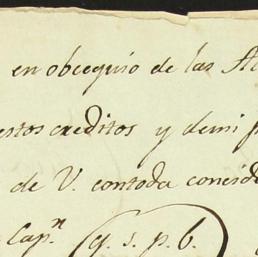 en obcequio de las
estos creditos y demi
de V. contoda concid
Cap.ⁿ (q. s. p. b.